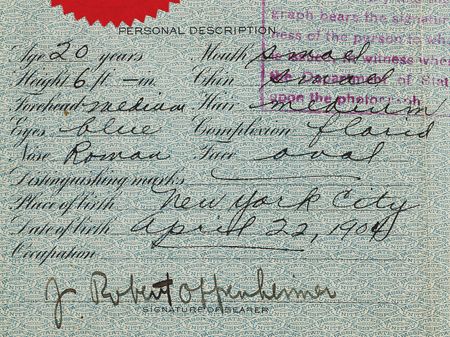 graph bears the signatur
ress of the person to wh
witness wher
the Department of Stat
upon the photograph
PERSONAL DESCRIPTION
Age 20 years Mouth small
Height 6 ft — in Chin
Forehead medium Hair medium
Eyes blue Complexion florid
Nose Roman Face oval
Distinguishing marks
Place of birth New York City
Date of birth April 22, 1904
Occupation
J Robert Oppenheimer
SIGNATURE OF BEARER